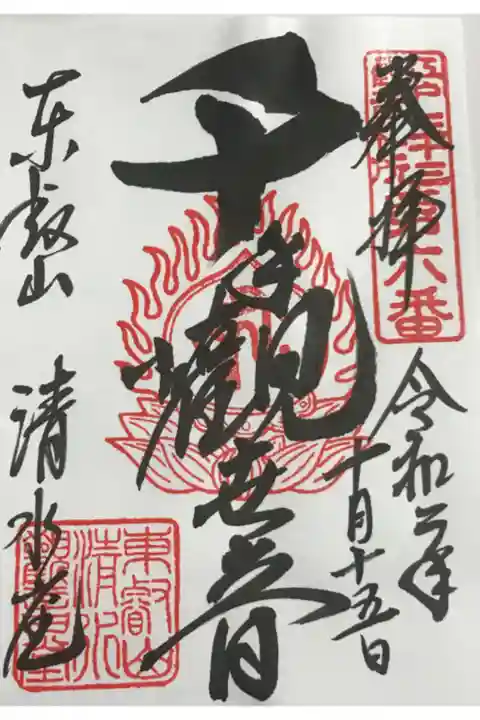 奉拝
六番
令和二年
十月十五日
千手觀世音
東叡山 清水堂
東叡山
清水
觀音堂